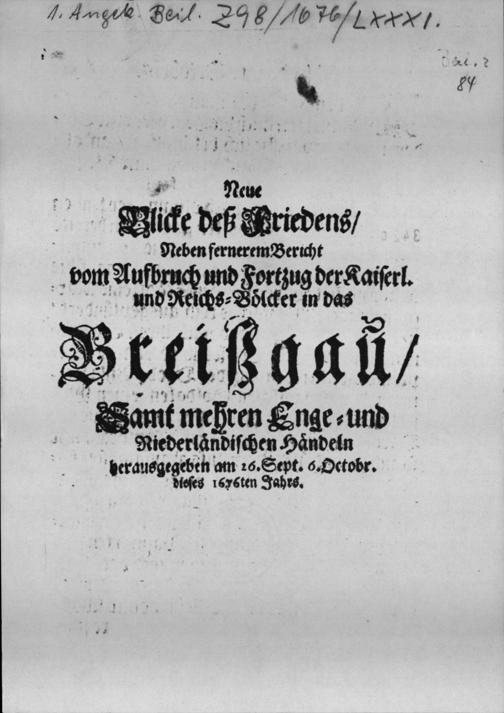 1. Angeb. Beil. Z98/1676/LXXXI.
84
Neue
Blicke deß Friedens/
Neben fernerem Bericht
vom Aufbruch und Fortzug der Kaiserl.
und Reichs-Völcker in das
Breißgaŭ/
Samt mehren Enge- und
Niederländischen Händeln
herausgegeben am 26. Sept. 6. Octobr.
dieses 1676ten Jahrs.